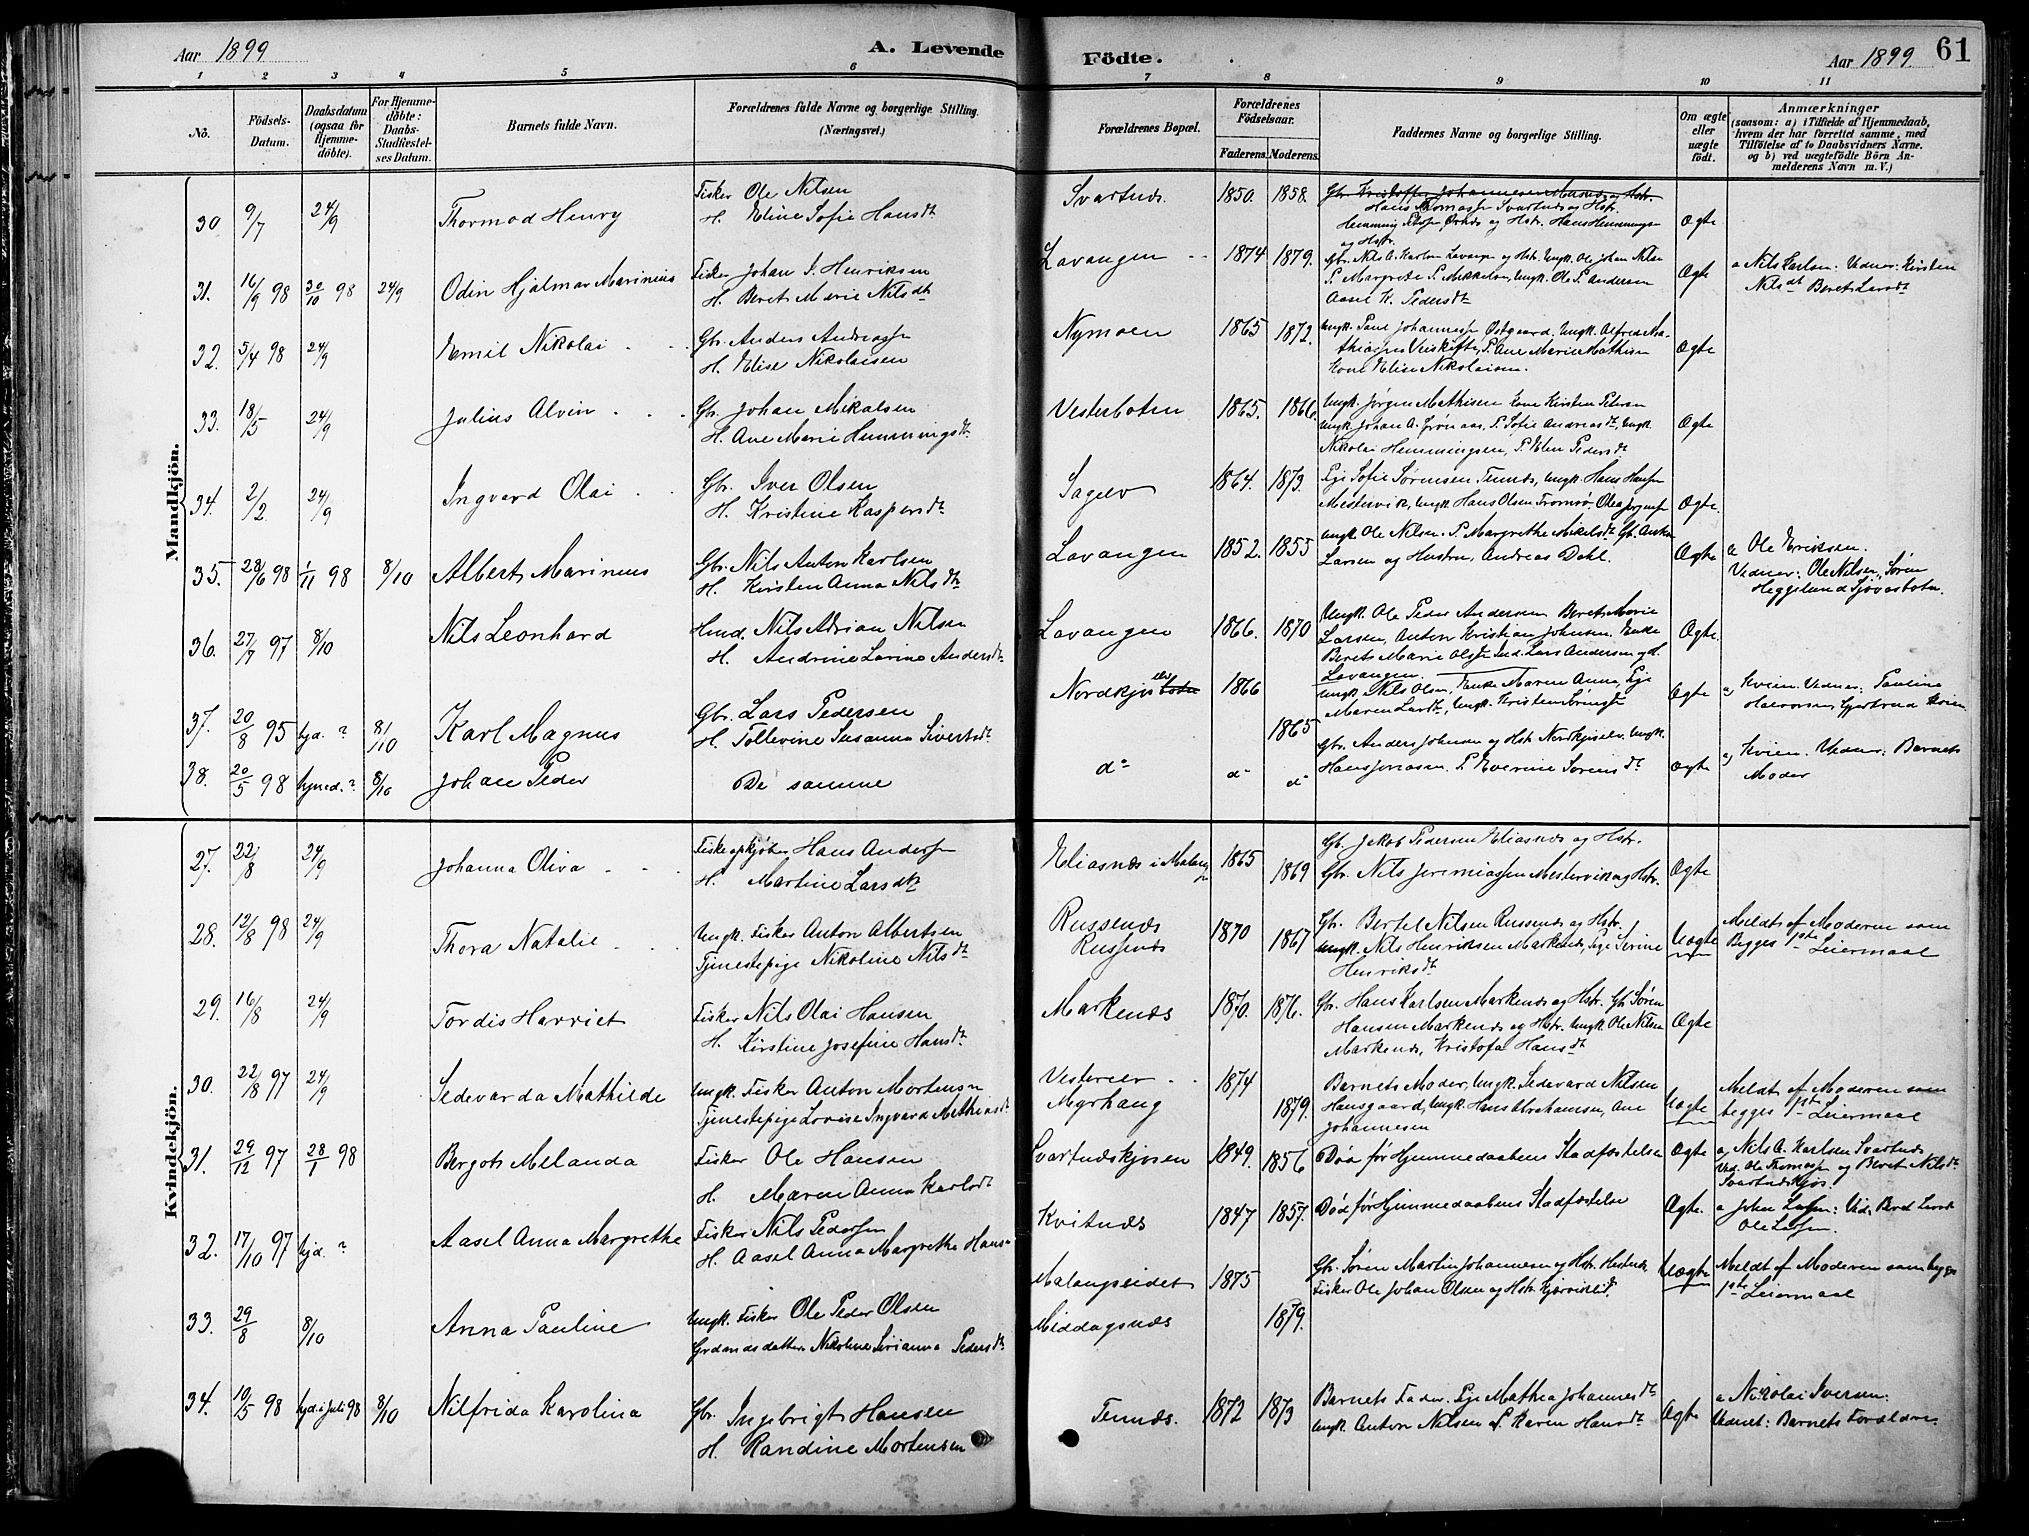 Aar 1899
A. Levende
Födte.
Aar 1899.
61
1 2 3 4 5 6 7 8 9 10 11
No.
Födsels-
Datum.
Daabsdatum
(ogsaa for
Hjemme-
döbte).
For Hjemme-
döbte:
Daabs-
Stadfæstel-
ses Datum.
Barnets fulde Navn.
Forældrenes fulde Navne og borgerlige Stilling.
(Næringsvei.)
Forældrenes Bopæl.
Forældrenes
Födselsaar.
Faderens. Moderens.
Faddernes Navne og borgerlige Stilling.
Om ægte
eller
uægte
födt.
Anmærkninger
(saasom: a) i Tilfælde af Hjemmedaab,
hvem der har forrettet samme, med
Tilföielse af to Daabsvidners Navne.
og b) ved uægtefödte Börn An-
melderens Navn m.V.)
Mandkjön.
30. 9/7 24/9 Thormod Henry
Fisker Ole Nilsen
H. Eline Sofie Hansdt
Svartnæs. 1850. 1858.
Hans Thomass. Svartnæs og Hstr.
og Hstr.
Ægte
31. 16/9 98 30/10 98 24/9 Odin Hjalmar Marinius
Fisker Johan J. Henriksen
H. Beret Marie Nilsdt
Lavangen 1874 1879.
Gbr. Nils A. Karlsen Lavangen og Hstr. Ungk. Ole Johan Nilsen
P. Margrete P. Mikkelsen, Ungk. Ole P. Andersen
Aasel K. Pedersdt
Ægte
a Nils Karlsen: Vidner: Kirsten
Nilsdt Beret Larsdt
32. 5/4 98 24/9 Emil Nikolai
Gbr. Anders Andreass.
H. Elise Nikolaisen
Nymoen 1865 1872.
P. Ane Marie Mathisen
Kone Elise Nikolaisen.
Ægte
33. 18/5 24/9 Julius Alvin
Gbr. Johan Mikalsen
H. Ane Marie Hemmingsdt
Vesterbotn 1865. 1866.
Ungk. Jørgen Mathisen Kone Kirsten Peders
Ungk. Johan A. Grønaas, P. Sofie Andreasdt, Ungk.
Nikolai Hemmingsen, P. Elen Pedersdt
Ægte
34. 2/2 24/9 Ingvard Olai
Gbr. Iver Olsen
H. Kristine Kaspersdt
Sagelv 1864. 1873.
Pige Sofie Sørensen Tennæs, Ungk. Hans Hansen
Mestervik, Ungk. Hans Olsen Tromsø,
Ægte.
35. 28/6 98 1/11 98 8/10 Albert Marinius
Gbr. Nils Anton Karlsen
H. Kirsten Anna Nilsdt
Lavangen 1852. 1855
Ungk. Ole Nilsen. P. Margrethe Mikelsdt Gb. Anton
Larsen og Hustru, Andreas Dahl.
Ægte
a Ole Eriksen.
Vidner: Ole Nilsen, Søren
Heggelund Sjøvasbotn.
36. 27/7 97 8/10 Nils Leonhard
Hmd. Nils Adrian Nilsen
H. Andrine Lovise Andersdt
Lavangen 1866. 1870
Ungk. Ole Peder Andersen Beret Marie
Larsen, Anton Kristian Johnsen. Enke
Beret Marie Olsdt Ind. Lars Andersen
Lavangen.
Ægte.
37. 20/8 95 hjd. ? 8/10 Karl Magnus
Gbr. Lars Pedersen
H. Tollevine Susanna Sivertsdt
Nordkjoselv 1866 1865
Ungk. Nils Olsen, Enke Maren Anna, Pige
Maren Larsdt, Ungk.
Ægte
a Kvien. Vidner: Pauline
Halvorsen, Gjertrud Kvien
38. 20/5 98 hjmed. ? 8/10 Johan Peder
De samme
do do do
Gbr. Anders Johnsen og Hstr Nordkjoselv. Ungk.
Hans Jonasen. P. Everine Sørensdt
Ægte
a Kvien. Vidner: Barnets
Moder
Kvindekjön.
27. 22/8 24/9 Johanna Oliva
Fiskeopkjøber Hans Anders.
H. Martine Larsdt
Eliasnæs i Malangen 1865 1869
Gb. Jakob Pedersen Eliasnæs og Hstr.
Gbr. Nils Jeremiassen Mestervik og Hstr.
Ægte
28. 12/8 98 24/9 Thora Natalie
Ungk. Fisker Anton Albertsen
Tjenestepige Nikoline Nilsdt
Russenæs
Russenæs
1870 1867
Gb. Bertel Nilsen Russenæs og Hstr.
Ungk. Nils Henriksen Markenæs, Pige Serine
Henriksdt
Uægte
Meldt af Moderen som
Begges 1ste Leiermaal
29. 16/8 24/9 Tordis Harriet
Fisker Nils Olai Hansen
H. Kirstine Josefine Hansdt
Markenæs 1870. 1876.
Gb. Hans Karlsen Markenæs og Hstr. Gb. Søren
Hansen Markenæs og Hstr. Ungk. Ole Nilsen
Markenæs, Kristofa Hansdt
Ægte
30. 22/8 97 24/9 Sedevarda Mathilde
Ungk. Fisker Anton Mortensen
Tjenestepige Lovise Ingvarda Mathiasdt
Vesterelv
Myrhaug
1874 1879.
Barnets Moder, Ungk. Sedevard Nilsen
Hansgaard, Ungk. Hans Abrahamsen, Ane
Johannesen
Uægte
Meldt af Moderen som
begges 1ste Leiermaal
31. 29/12 97 28/1 98 Bergot Melanda
Fisker Ole Hansen
H. Maren Anna Karlsdt
Svartnæskjosen 1849. 1856
Død før Hjemmedaabens Stadfæstelse
Ægte
a Nils A. Karlsen Svartnæs
Vid. Ole Thomass. og Beret Nilsdt
Svartnæskjos.
32. 17/10 97 hjd. ? Aasel Anna Margrethe
Fisker Nils Peders.
H. Aasel Anna Margrethe Hans
Kvitnæs 1847 1857.
Død før Hjemmedaabens Stadfæstelse
Ægte.
a Johan Larsen: Vid. Beret Larsdt
Ole Larsen.
33. 29/8 8/10 Anna Pauline
Ungk. Fisker Ole Peder Olsen
Grdmdsdatter Nikoline Serianna Pedersdt
Malangseidet
Middagsnæs
1875 1879.
Gbr. Søren Martin Johannesen og Hstr.
Fisker Ole Johan Olsen og Hstr.
Uægte
Meldt af Moderen som begges
1ste Leiermaal
34. 10/5 98 hjd. i Juli 98 8/10 Nilfrida Karolina
Gbr. Ingebrigt Hansen
H. Randine Mortensen
Tennæs. 1872 1873
Barnets Fader, Pige Mathea Johannesdt
Ungk. Anton Nilsen P. Karen Hansdt
Ægte
a Nikolai Iversen.
Vidner: Barnets Forældre